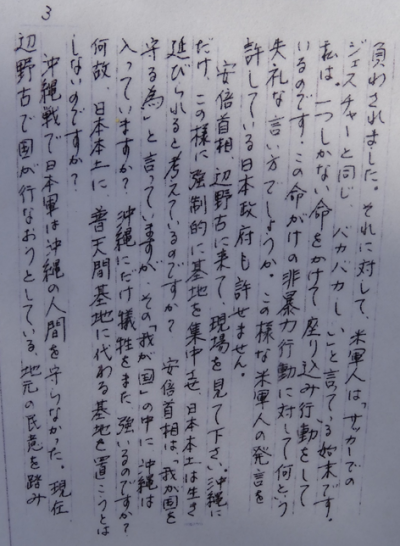 3
負わされました。それに対して、米軍人は「サッカーでの
ジェスチャーと同じ バカバカしい」と言っている始末です。
私は、一つしかない命をかけて座り込み行動をして
いるのです。この命がけの非暴力行動に対して何という
失礼な言い方でしょうか。この様な米軍人の発言を
許している日本政府も許せません。
安倍首相、辺野古に来て、現場を見て下さい。沖縄に
だけ、この様に強制的に基地を集中させ、日本本土は生き
延びられると考えているのですか? 安倍首相は、我が国を
守る為」と言っていますが、その「我が国」の中に沖縄は
入っていますか? 沖縄にだけ犠牲をまた強いるのですか?
何故、日本本土に、普天間基地に代わる基地を置こうとは
しないのですか?
沖縄戦で日本軍は沖縄の人間を守らなかった。現在
辺野古で国が行なおうとしている、地元の民意を踏み